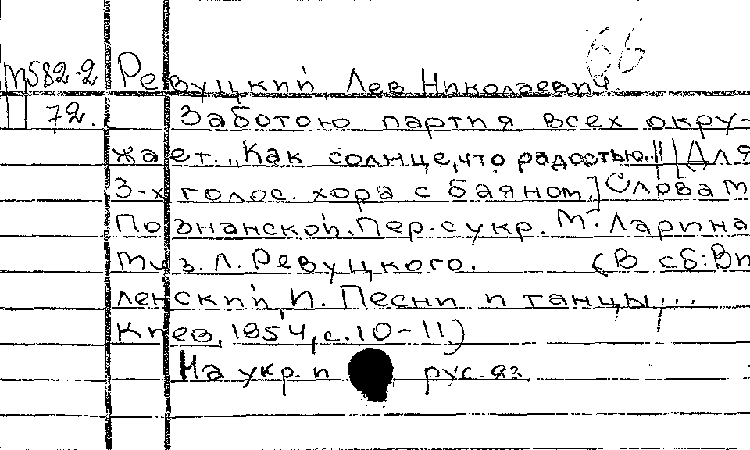 66
М582-2 Ревуцкий, Лев Николаевич.
72. Заботою партия всех окру-
жает. „Как солнце, что радостью..." [Для
3-х голос. хора с баяном.] Слова М.
Познанской. Пер. с укр. М. Ларина
Муз. Л. Ревуцкого. (В сб: Вп
ленский, И. Песни и танцы...
Киев, 1954, с. 10-11.)
На укр. и рус. яз.